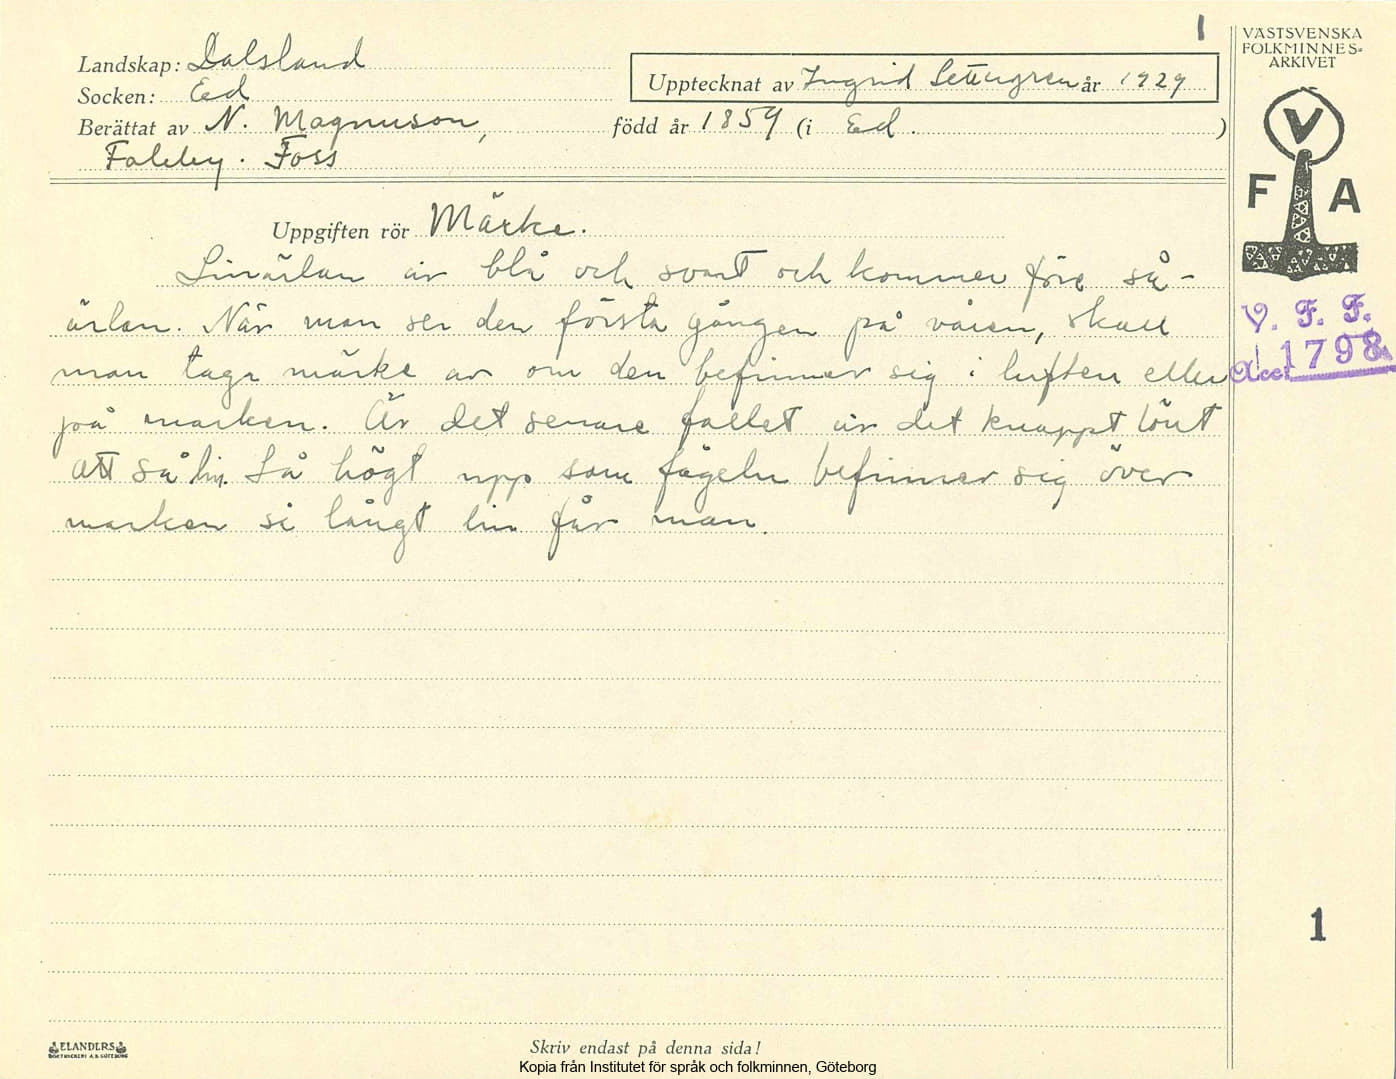 1
VÄSTSVENSKA
FOLKMINNES-
ARKIVET
Landskap: Dalsland
Upptecknat av Ingrid år 1929
Socken: Ed
Berättat av N. Magnuson, född år 1859 (i Ed. )
Foss
V
F A
Uppgiften rör Märke.
Linärlan är blå och svart och kommer före så-
ärlan. När man ser den första gången på våren, skall
man taga märke av om den befinner sig i luften eller
på marken. Är det senare fallet är det knappt lönt
att så lin. Så högt upp som fågeln befinner sig över
marken så långt lin får man.
V. F. F.
Acc. 1798
1
ELANDERS
BOKTRYCKERI A.B. GÖTEBORG
Skriv endast på denna sida!
Kopia från Institutet för språk och folkminnen, Göteborg